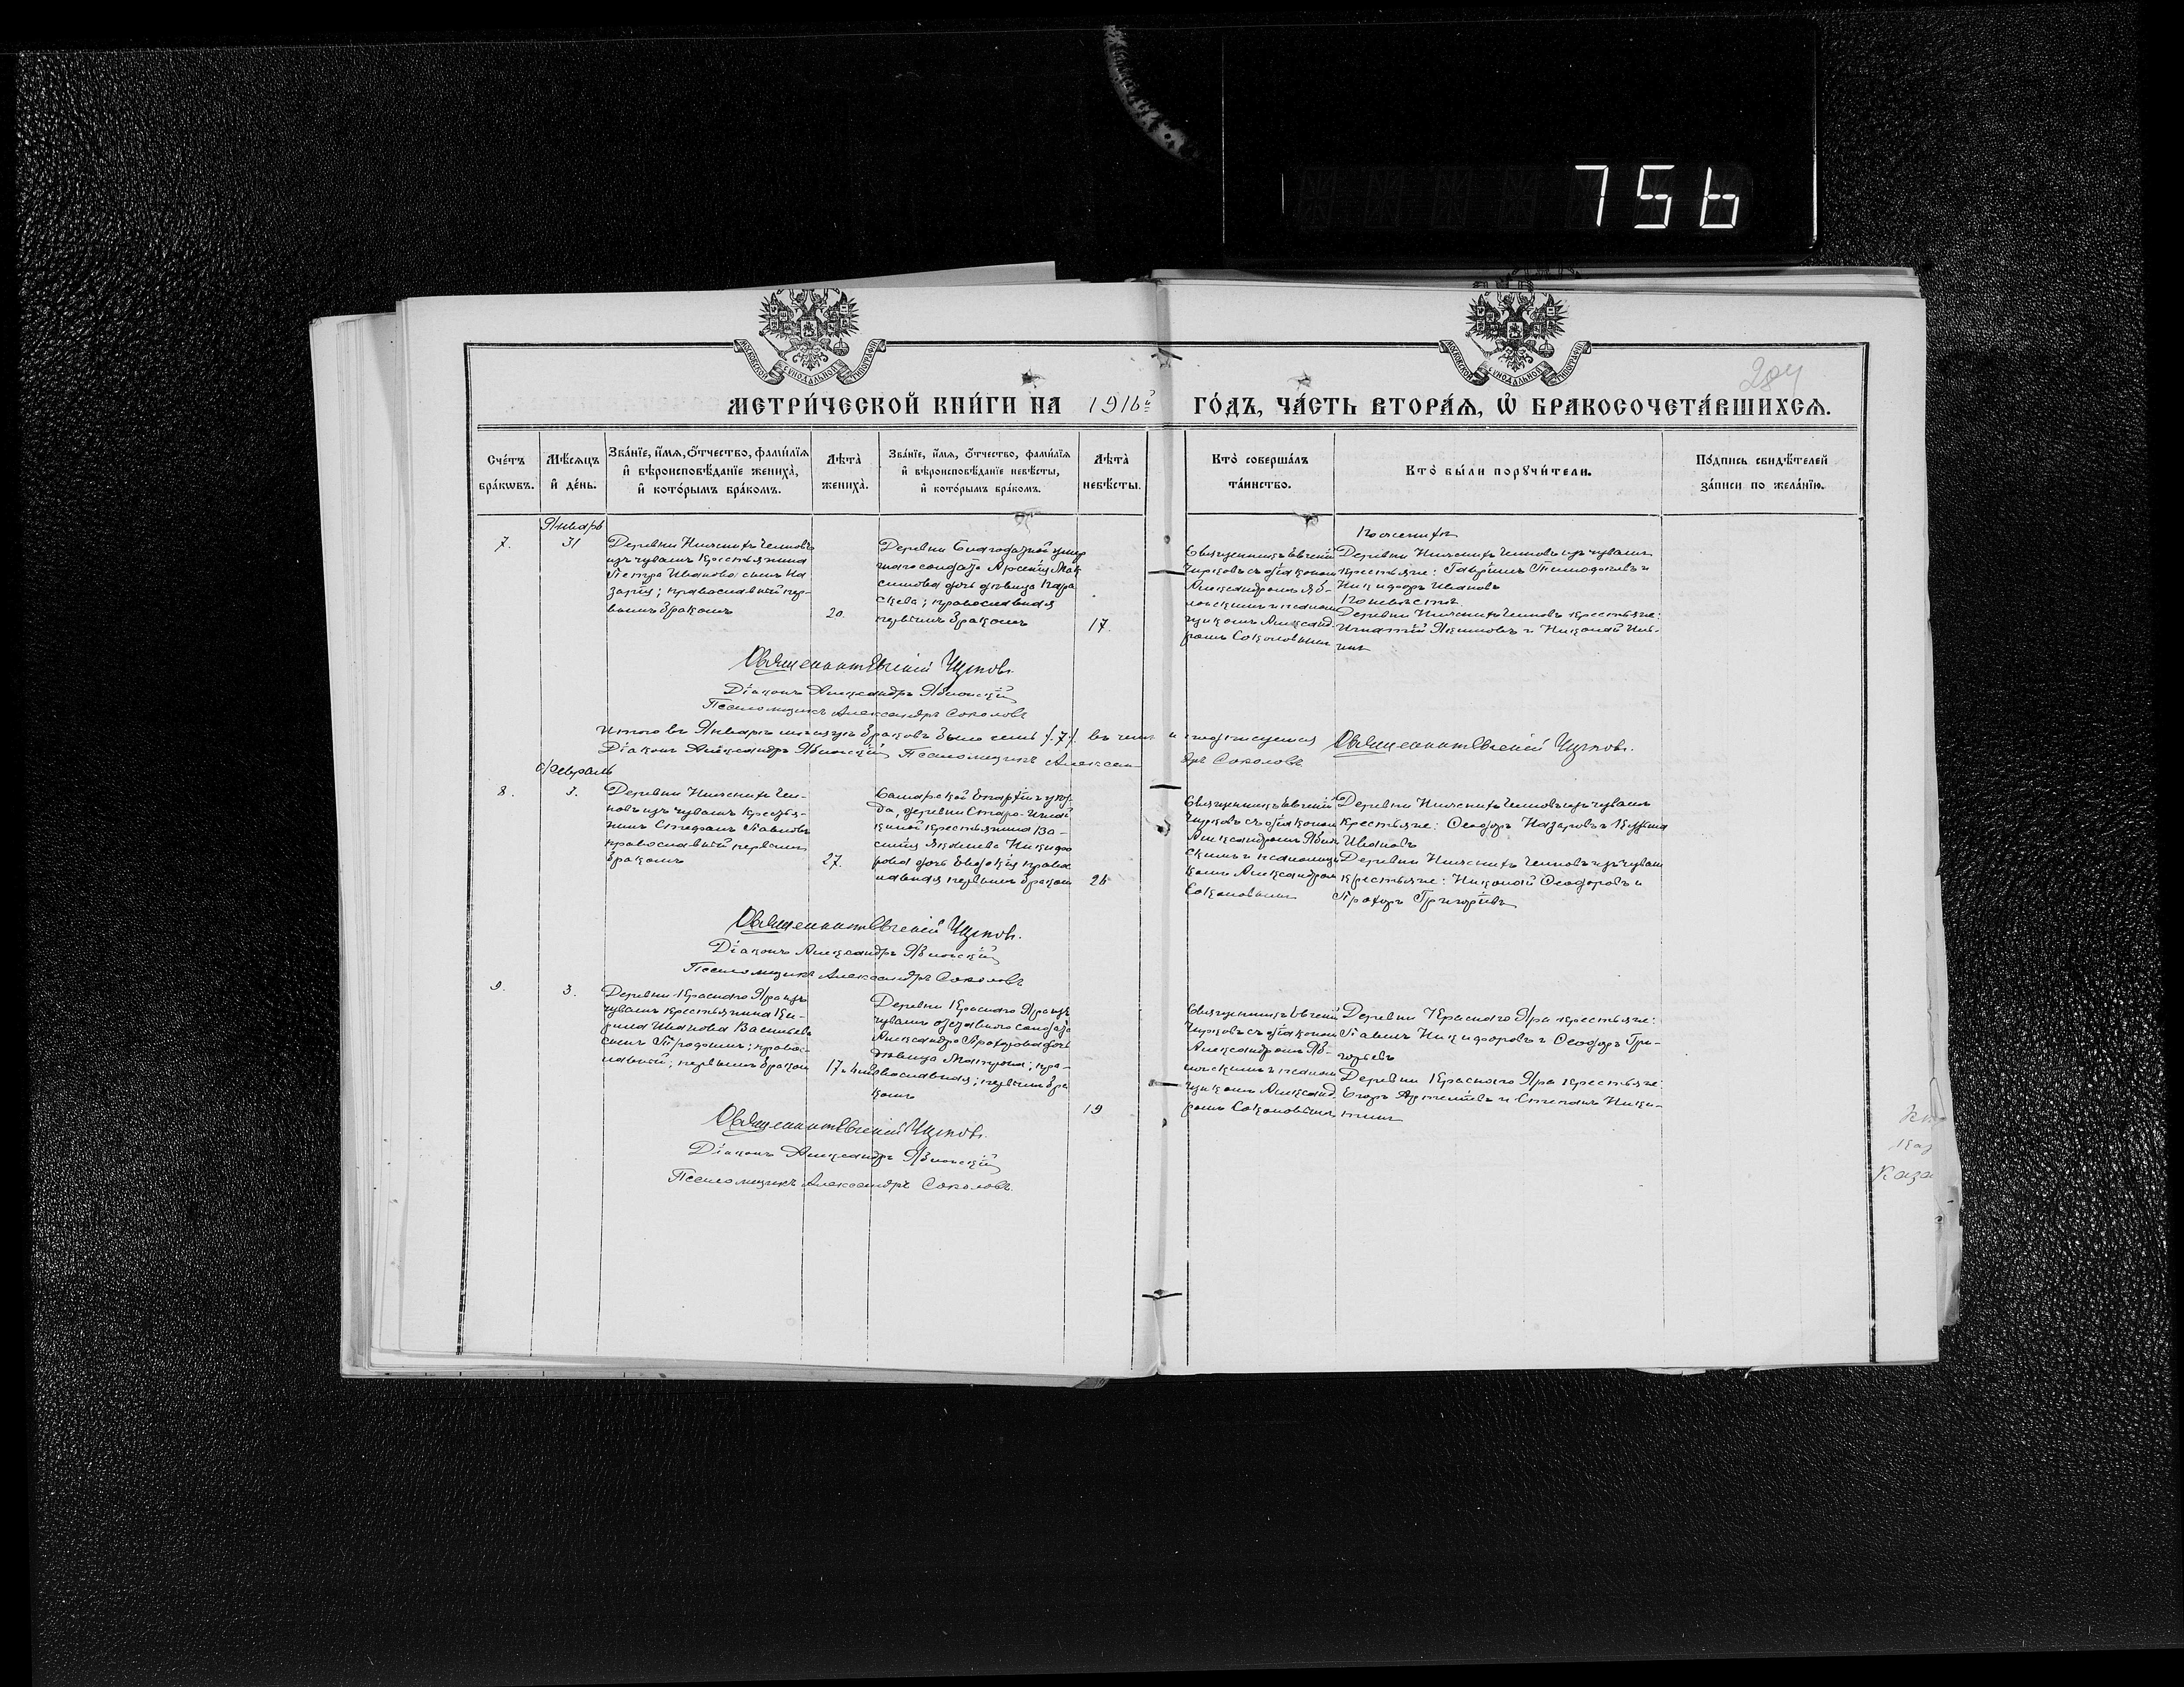 756
МОСКОВСКОЙ СѴНОДАЛЬНОЙ ТИПОГРАФІИ
МОСКОВСКОЙ СѴНОДАЛЬНОЙ ТИПОГРАФІИ
284
МЕТРИ́ЧЕСКОЙ КНИ́ГИ НА 1916й ГО́ДЪ, ЧА́СТЬ ВТОРА́Я, Ѡ҆ БРАКОСОЧЕТА́ВШИХСЯ.
Сче́тъ бра́кѡвъ.
Мѣ́сяцъ и҆ де́нь.
Зва́нїе, и҆́мя, ѻ҆́тчество, фами́лїя
и҆ вѣроисповѣ́данїе жениха̀,
и҆ кото́рымъ бра́комъ.
Лѣта̀ жениха̀.
Зва́нїе, и҆́мя, ѻ҆́тчество, фами́лїя
и҆ вѣроисповѣ́данїе невѣ́сты,
и҆ кото́рымъ бра́комъ.
Лѣта̀ невѣ́сты.
Кто̀ соверша́лъ
та́инство.
Кто̀ бы́ли порꙋчи́тели.
По́дпись свидѣ́телей
за́писи по жела́нїю.
7.
Январь
31
Деревни Нижнихъ Чепковъ
изъ чувашъ крестьянина
Петра Иванова сынъ На
зарій; православный пер-
вымъ бракомъ
20.
Деревни Благодатной умер
шаго солдата Арсенія Мак
симова дочь дѣвица Пара
скева; православная
первымъ бракомъ
17.
Священникъ Евгеній
съ діакономъ
Александромъ Яб-
лонскимъ и псалом
щикомъ Александ-
ромъ Соколовымъ
По женихѣ
Деревни Нижнихъ Чепковъ изъ чувашъ
крестьяне: Гавріилъ и
Никифоръ Ивановъ
По невѣстѣ
Деревни Нижнихъ Чепковъ крестьяне:
Игнатій Якимовъ и Николай Иль-
инъ
Священникъ Евгеній
Діаконъ Александръ Яблонскій
Псаломщикъ Александръ Соколовъ
Итого въ Январѣ мѣсяцѣ браковъ было семь /.7./. въ чемъ и подписуемся Священникъ Евгеній
Діаконъ Александръ Яблонскій Псаломщикъ Александръ Соколовъ
8.
Февраль
3.
Деревни Нижнихъ Чеп-
ковъ изъ чувашъ крестья-
нинъ Стефанъ Павловъ
православный первымъ
бракомъ
27.
Самарской Епархіи и уѣз-
да, деревни Старо-
крестьянина Ва-
силія Яковлева Никифо
рова дочь Евдокія правос
лавная первымъ бракомъ
26
Священникъ Евгеній
съ діакономъ
Александромъ Яблон
скимъ и псаломщи
комъ Александромъ
Соколовымъ
Деревни Нижнихъ Чепковъ изъ чувашъ
крестьяне: Ѳеодоръ Назаровъ и Кузьма
Ивановъ
Деревни Нижнихъ Чепковъ изъ чувашъ
крестьяне: Николай Ѳеодоровъ и
Прохоръ Григорьевъ
Священникъ Евгеній
Діаконъ Александръ Яблонскій
Псаломщикъ Александръ Соколовъ
9.
3.
Деревни Краснаго Яра изъ
чувашъ крестьянина Ки-
рила Иванова Васильева
сынъ Продомъ; правос-
лавный; первымъ бракомъ
Деревни Краснаго Яра изъ
чувашъ отставного солдата
Александра Прохорова дочь
дѣвица Матрона; пра-
вославная; первымъ бра
комъ
19
Священникъ Евгеній
съ діакономъ
Александромъ Яб-
лонскимъ и псалом
щикомъ Александ-
ромъ Соколовымъ
Деревни Краснаго Яра крестьяне:
Павелъ Никифоровъ и Ѳеодоръ Гри-
горьевъ
Деревни Краснаго Яра крестьяне:
Егоръ Артемьевъ и Степанъ Ники-
тинъ
Священникъ Евгеній
Діаконъ Александръ Яблонскій
Псаломщикъ Александръ Соколовъ.
Каз
Каза